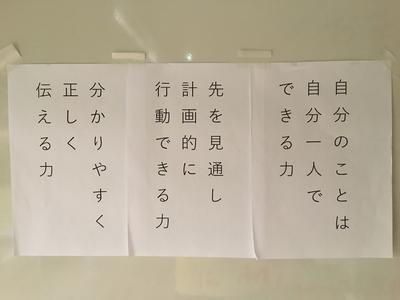 自分のことは
自分一人で
できる力
先を見通し
計画的に
行動できる力
分かりやすく
正しく
伝える力